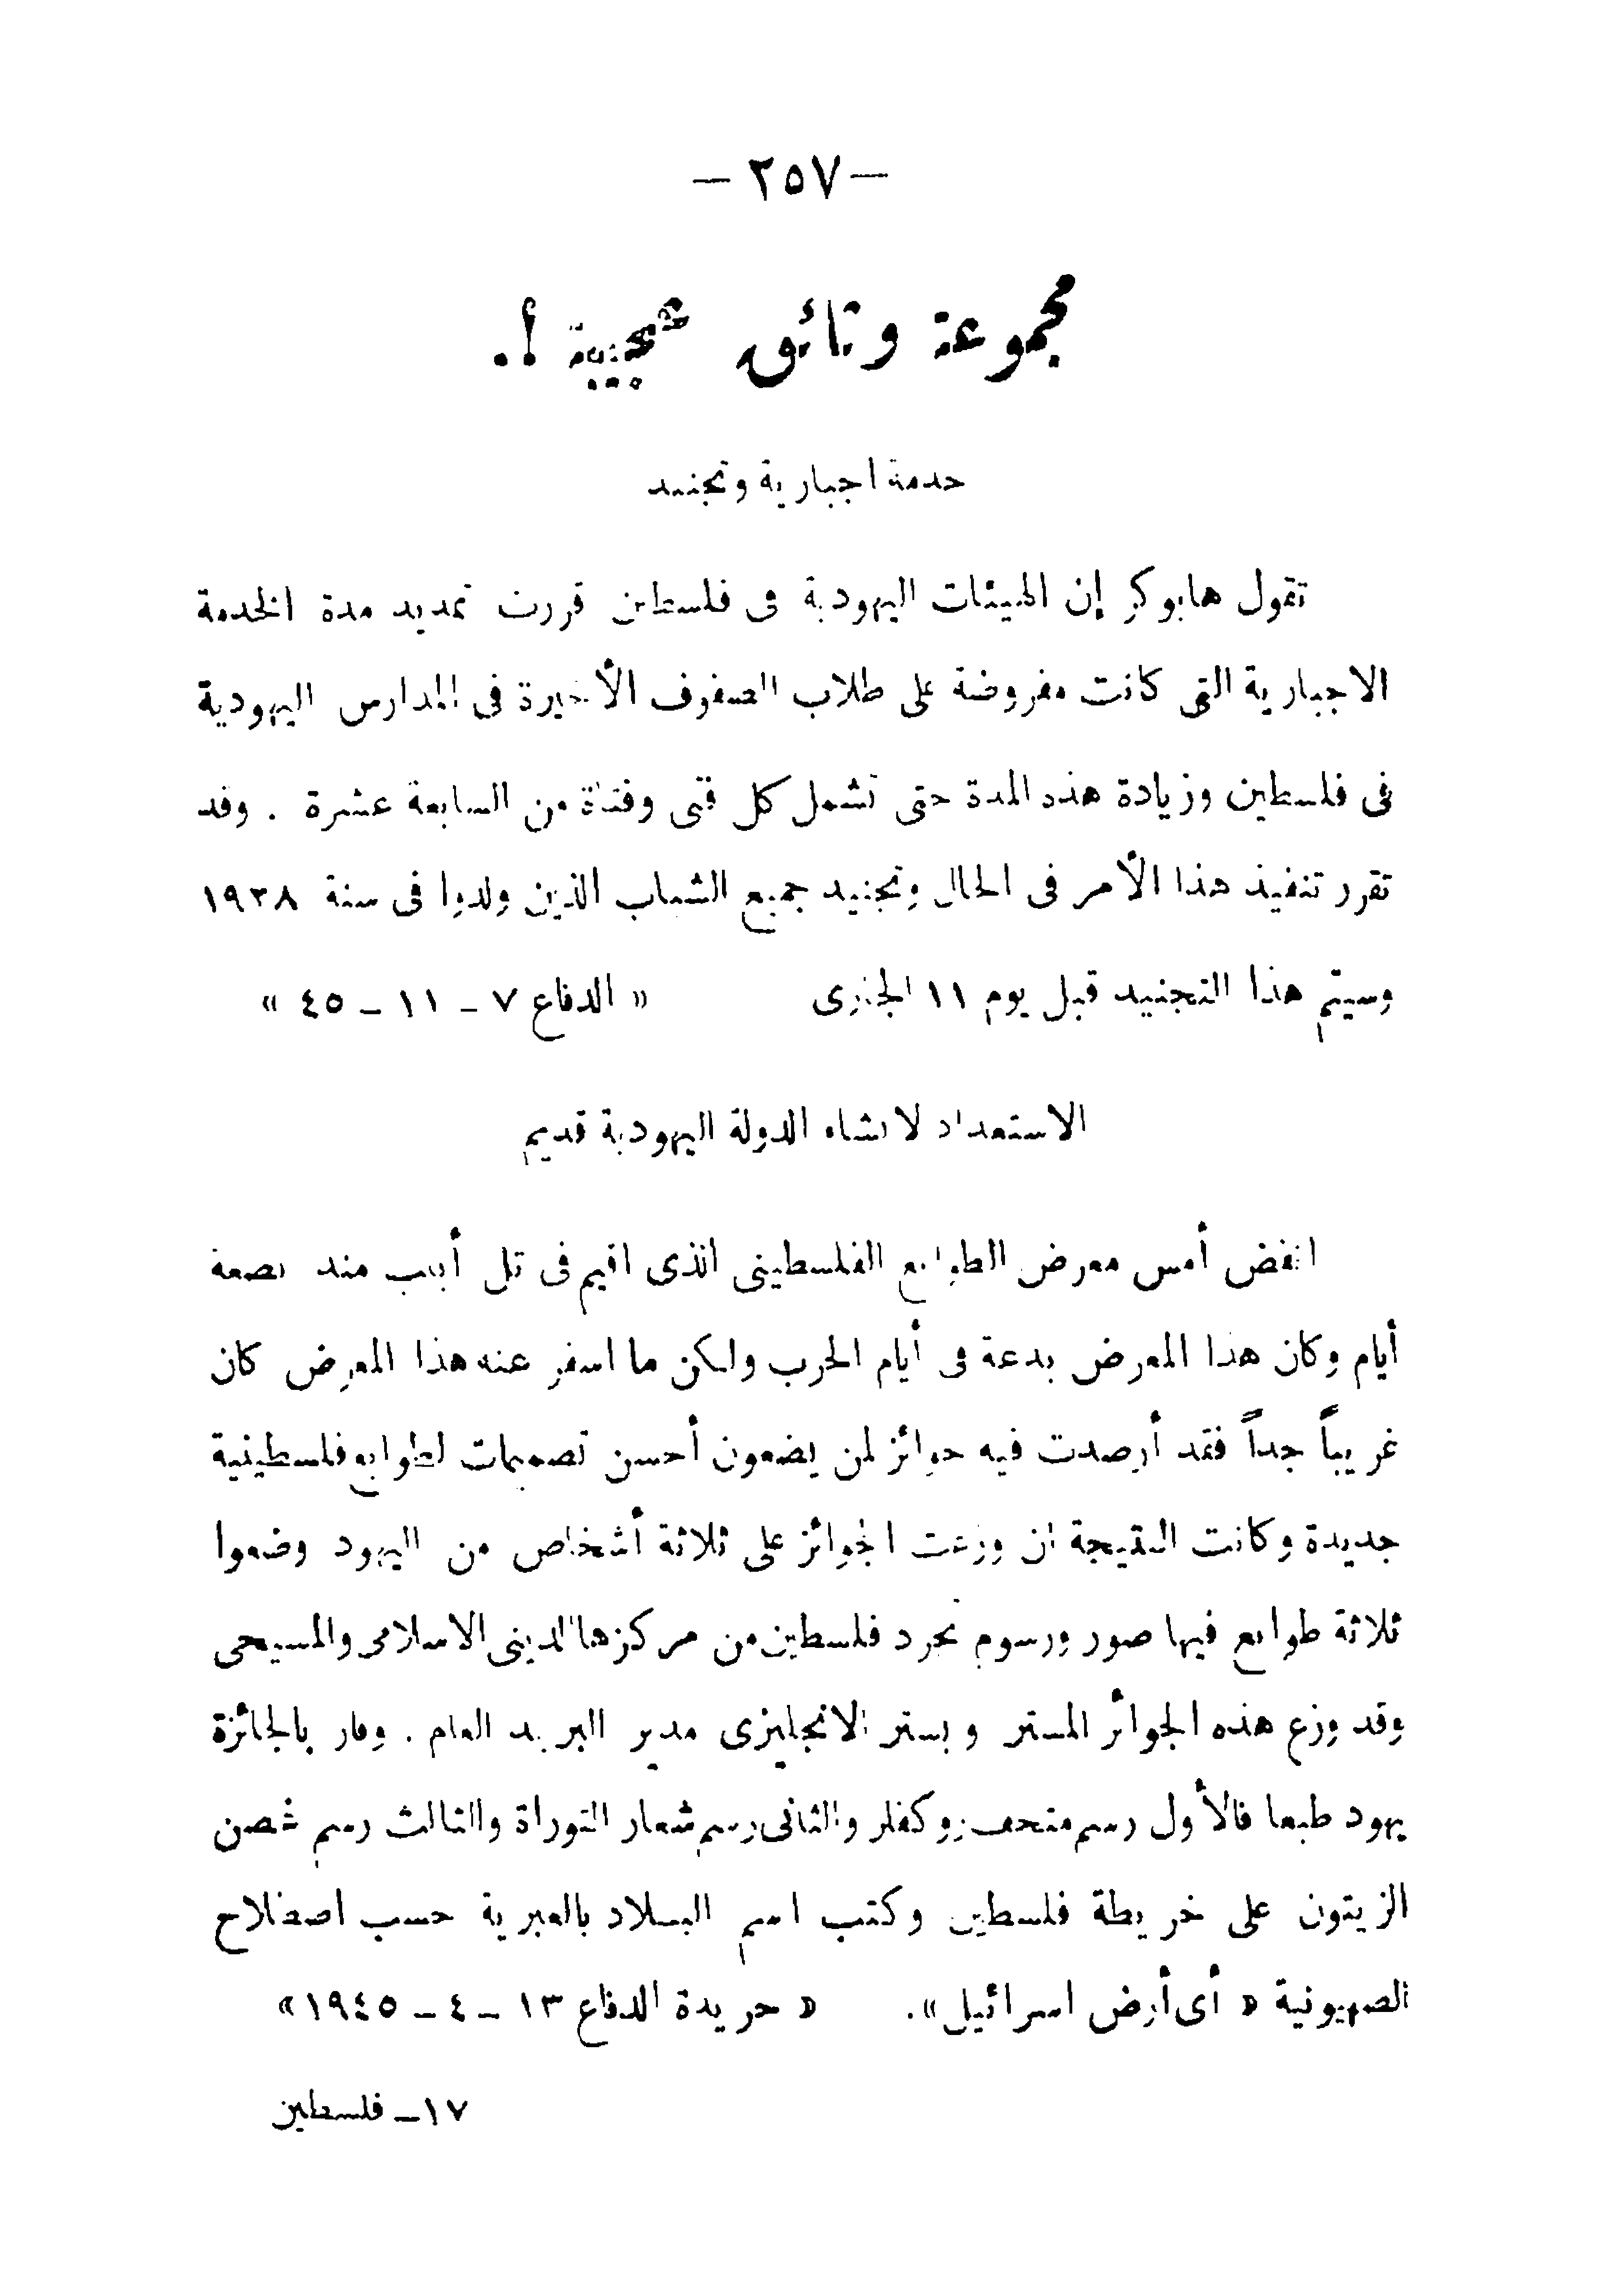 — ٢٥٧ —
مجموعة وثائق عجيبة !.
خدمة اجبارية وتجنيد
تقول هابوكر إن الهيئات اليهودية فى فلسطين قررت تمديد مدة الخدمة
الاجبارية التى كانت مفروضة على طلاب الصفوف الأخيرة فى المدارس اليهودية
فى فلسطين وزيادة هذه المدة حتى تشمل كل فتى وفتاة من السابعة عشرة . وقد
تقرر تنفيذ هذا الأمر فى الحال وتجنيد جميع الشباب الذين ولدوا فى سنة ١٩٣٨
وسيتم هذا التجنيد قبل يوم ١١ الجارى « الدفاع ٧ – ١١ – ٤٥ »
الاستعداد لانشاء الدولة اليهودية قديم
انفض أمس معرض الطوابع الفلسطينى الذى اقيم فى تل أبيب منذ بضعة
أيام وكان هذا المعرض بدعة فى أيام الحرب ولكن ما اسفر عنه هذا المعرض كان
غريباً جداً فقد أرصدت فيه جوائز لمن يضعون أحسن تصميمات لطوابع فلسطينية
جديدة وكانت النتيجة ان وزعت الجوائز على ثلاثة أشخاص من اليهود وضعوا
ثلاثة طوابع فيها صور ورسوم تجرد فلسطين من مركزها الدينى الاسلامى والمسيحى
وقد وزع هذه الجوائز المستر وبستر الانجليزى مدير البريد العام . وفاز بالجائزة
يهود طبعا فالأول رسم متحف روكفلر والثانى رسم شعار التوراة والثالث رسم غصن
الزيتون على خريطة فلسطين وكتب اسم البلاد بالعبرية حسب اصطلاح
الصهيونية « أى أرض اسرائيل ». « جريدة الدفاع ١٣ – ٤ – ١٩٤٥ »
١٧ – فلسطين